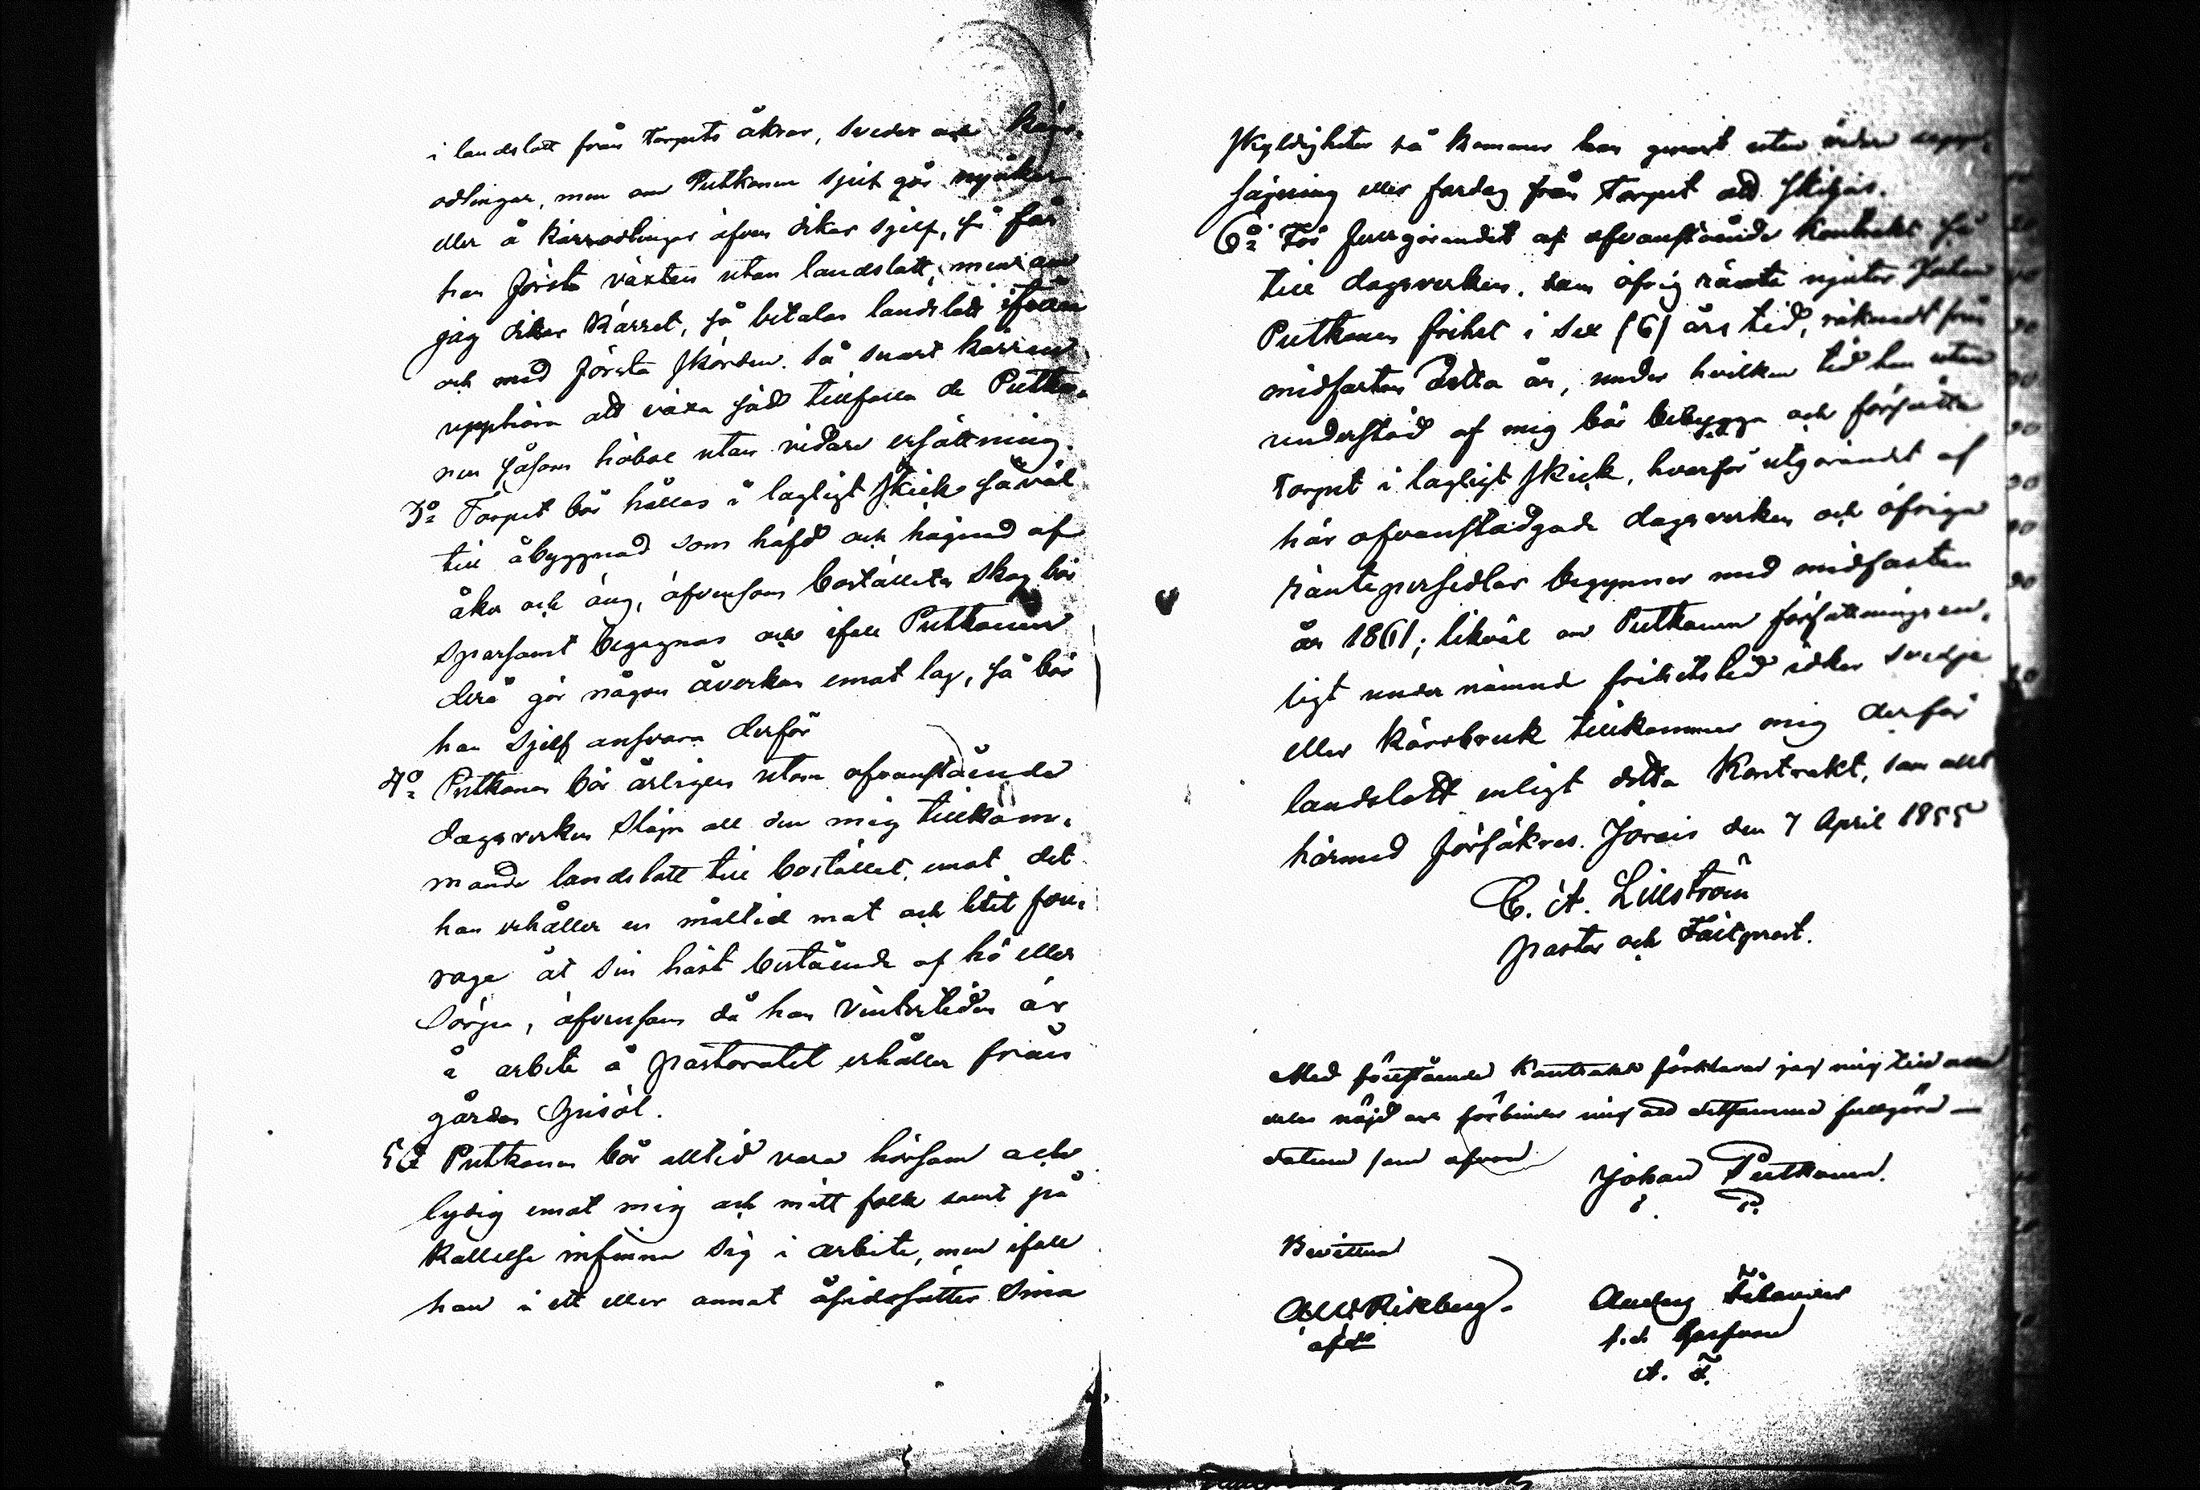 i landslått från Torpets åkrar, sveder och kärr-
odlingar, men om Putkonen sjelf gör nyåker
eller å kärrodlingar äfven diker sjelf, så får
han första växten utan landslått, men om
jag diker kärret, så betalas landslått ifrån
och med första skörden. Så snart kärren
upphöra att växa säd tillfalla de Putko-
nen såsom höbol utan vidare ersättning.
3o Torpet bör hållas i lagligt skick såväl
till åbyggnad som häfd och hägnad af
åker och äng, äfvensom boställets skog bör
sparsamt begagnas och ifall Putkonen
derå gör någon åverkan emot lag, så bör
han sjelf ansvara derför
4o Putkonen bör årligen utom ofvanstående
dagsverken släpa all den mig tillkom-
mande landslått till bostället, emot det
han erhåller en måltid mat och litet fou-
rage åt sin häst bestående af hö eller
sörpa, äfvensom då han vintertiden är
å arbete å pastoratet erhåller från
gården spisöl.
5o Putkonen bör alltid vara hörsam och
lydig emot mig och mitt folk samt på
kallelse infinna sig i arbete, men ifall
han i ett eller annat åsidosätter sina
skyldigheter så kommer han genast utan vidare upp-
sägning eller fardag från Torpet att skiljas.
6o För fullgörandet af ofvanstående Kontrakt så
till dagsverken, som öfrig ränta njuter Johan
Putkonen frihet i sex (6) års tid, räknadt från
midfastan detta år, under hvilken tid han utan
understöd af mig bör bebygga och försätta
Torpet i lagligt skick, hvarför utgörandet af
här ofvanstadgade dagsverken och öfriga
räntepersedlar begynner med midfastan
år 1861; likväl om Putkonen författningsen-
ligt under nämnde frihetstid idkar svedje
eller kärrbruk tillkommer mig derför
landslått enligt detta Kontrakt, som allt
härmed försäkras. Jorois den 7 April 1855
C. A. Lillström
pastor och Fältprost.
Med förestående Kontrakt förklarar jag mig till alla
delar nöjd och förbinder mig att detsamma fullgöra
datum som ofvan
Johan Putkonen.
P.
Bevittna
Rikberg.
Anders
A.